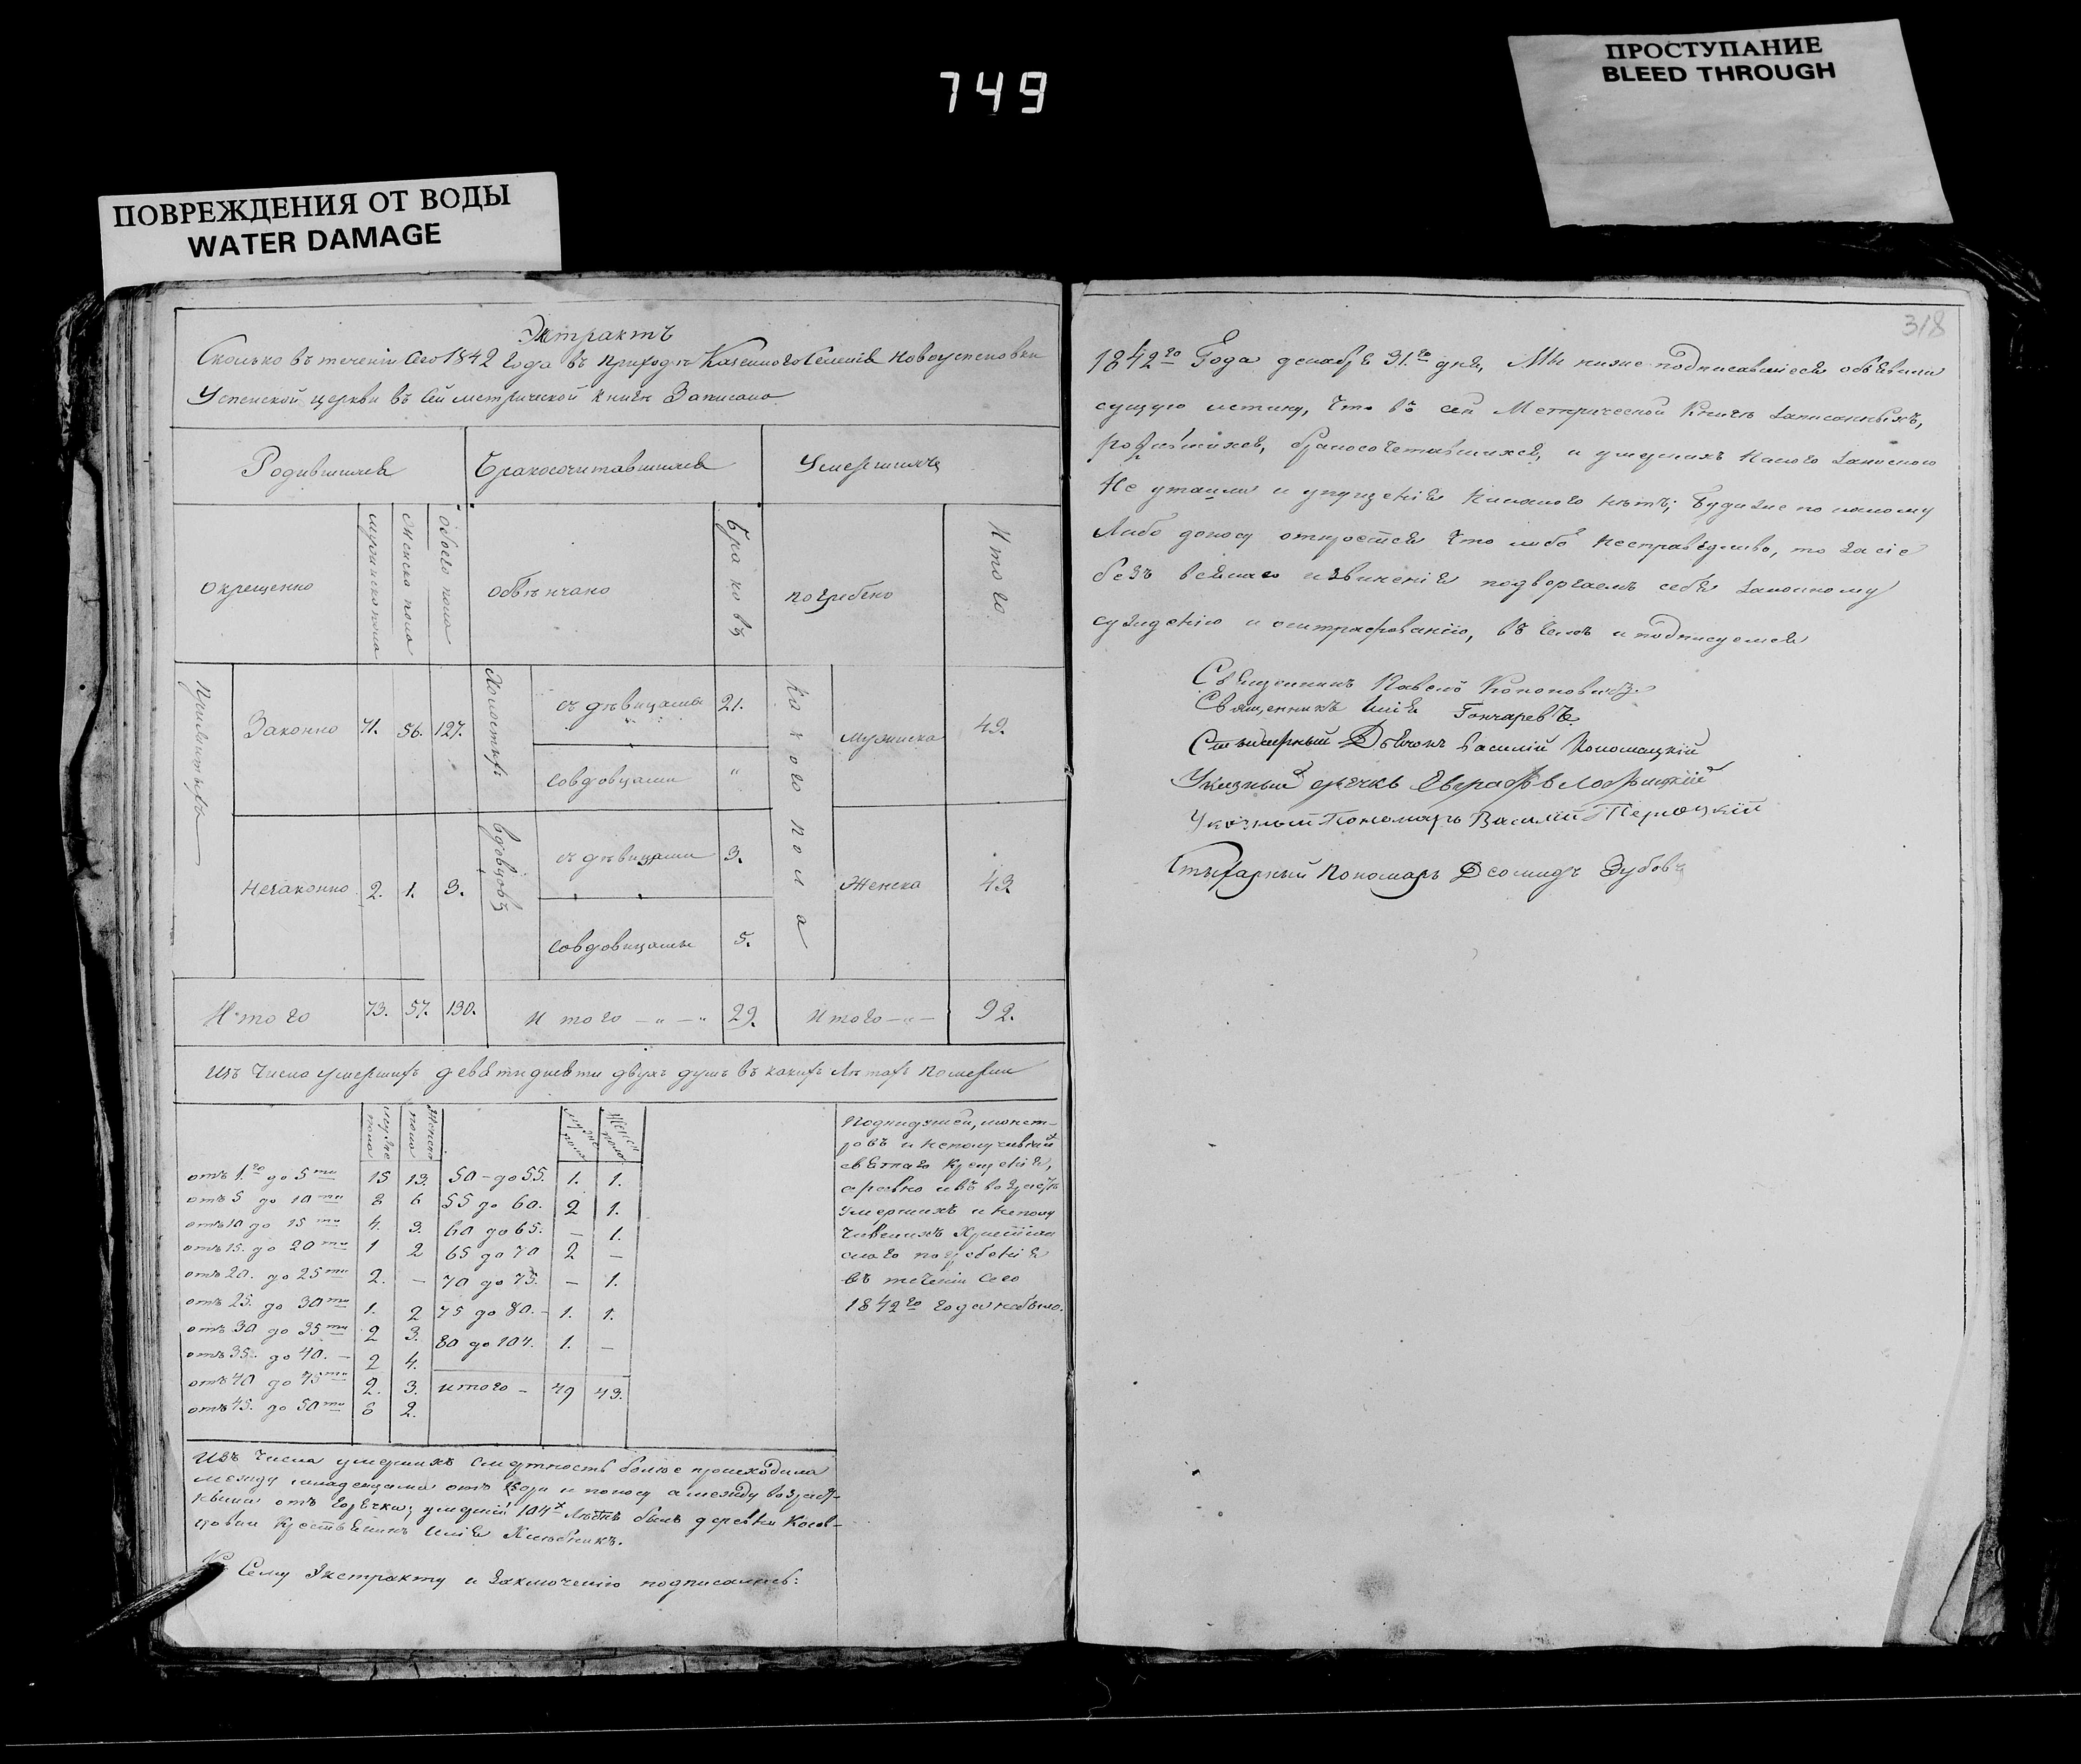 749
ПРОСТУПАНИЕ
BLEED THROUGH
ПОВРЕЖДЕНИЯ ОТ ВОДЫ
WATER DAMAGE
Экстрактъ
Сколько въ теченіи сего 1842 года въ приходѣ Казенного Селенія Новоуспеновки
Успенской церкви въ сей метрической книгѣ Записано
Родившихся
Бракосочитавшихся
Умершихъ
окрещенно
мужинско пола
женско пола
обоего пола
обвѣнчано
браковъ
погребено
Итого
Законно 71. 56. 127.
Холостыхъ
съ дѣвицами 21.
совдовцами "
Какого пола
мужиска 49.
Незаконно 2. 1. 3.
вдовцовъ
съ дѣвицами 3.
совдовицами 5.
Женска 43.
Итого 73. 57. 130.
Итого — " — " 29.
Итого — " — 92.
Изъ числа умершихъ девятидцети двухъ душъ въ какихъ лѣтахъ померли
отъ 1го до 5ти 15 13. 50 - до 55. 1. 1.
отъ 5 до 10ти 8 6 55 до 60. 2 1.
отъ 10 до 15ти 4. 3. 60 до 65. — 1.
отъ 15. до 20ти 1 2 65 до 70 2 —
отъ 20. до 25ти 2. — 70 до 75. — 1.
отъ 25. до 30ти 1. 2 75 до 80. - 1. 1.
отъ 30 до 35ти 2 3. 80 до 104. 1. —
отъ 35. до 40. — 2 4.
отъ 40 до 45ти 2. 3. итого — 49 43.
отъ 45. до 50ти 8 2.
Подкидышей, монст-
ровъ и неполучившихъ
святаго крещенія,
а равно и въ возрастѣ
умершихъ и неполу
чившихъ Христіан
скаго погребенія
въ теченіи сего
1842го года небыло.
Изъ числа умершихъ смертность болѣе происходила
между младенцами отъ и поносу а между возраст-
ными отъ горячки; умершій 104х лѣтнъ былъ деревни
крестьянинъ Илія
Къ Сему Экстракту и заключенію подписались:
318
1842го Года декабря 31го дня, Мы ниже подписавшіеся объявили
сущую истину, что въ сей Метрической книгѣ записанныхъ,
родившихся, бракосочетавшихся, и умершихъ никого
Не утаили и упущенія никакого нѣтъ; буди же по какому
либо доносу откроется что либо несправедливо, то за сіе
безъ всякаго извиненія подвергаемъ себя законному
сужденію и оштрафованію, въ чемъ и подписуемся
Священникъ Павелъ Кононовичъ.
Священникъ Илія Гончаревъ.
Дьяконъ Василій
Указный дьячкъ Евграфъ
Указный Пономарь Василій
Стихарный Пономарь Деомидъ Зубовъ